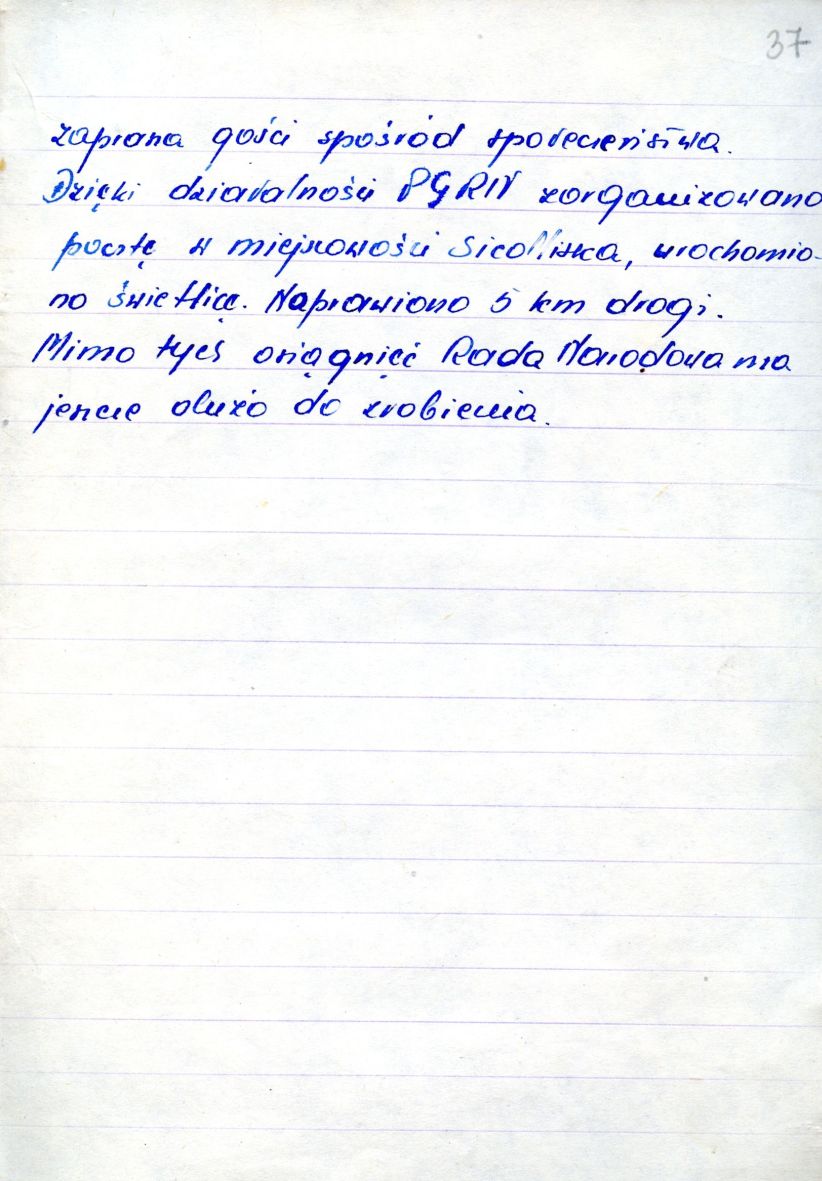 37
zaprasza gości spośród społeczeństwa.
Dzięki działalności PGRN zorganizowano
pocztę w miejscowości, uruchomio-
no świetlicę. Naprawiono 5 km drogi.
Mimo tych osiągnięć Rada Narodowa ma
jeszcze dużo do zrobienia.